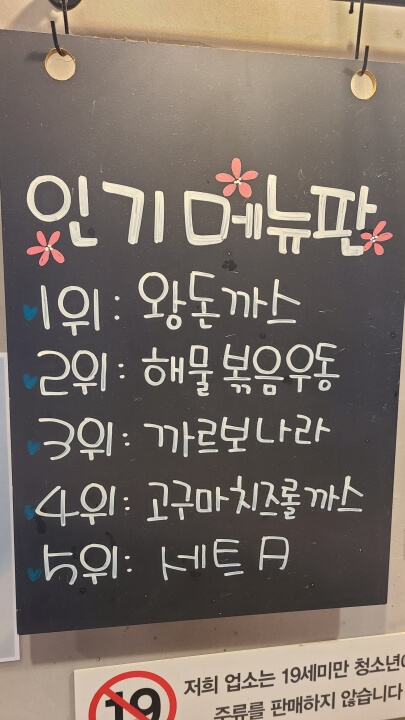 인기메뉴판
1위: 왕돈까스
2위: 해물볶음우동
3위: 까르보나라
4위: 고구마치즈롤까스
5위: 세트 A
19
저희 업소는 19세미만 청소년에
주류를 판매하지 않습니다